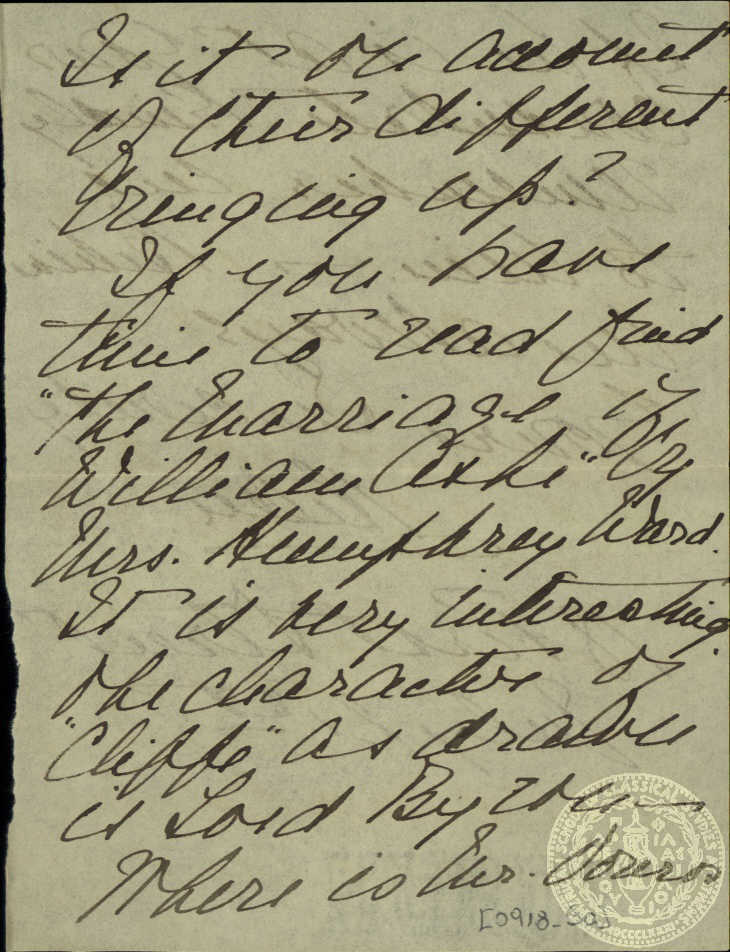 Is it on account
of their different
bringing up?
If you have
time to read find
"The Marriage of
William Ashe" by
Mrs. Humphrey Ward.
It is very interesting
the character of
"Cliffe" as drawn
is Lord Byron—
Where is Mr.
[0918_30]